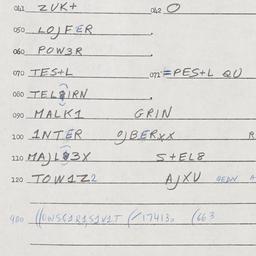 041 ZUK+ 042 O
050 LOJFER
060 POW3R
070 TES+L 071 =PES+L QU
080 TEL8IRN
090 MALK1 GRIN
100 1NTER OJBERXX R
110 MAJL83X S+EL8
120 TOW1Z2 AJXU